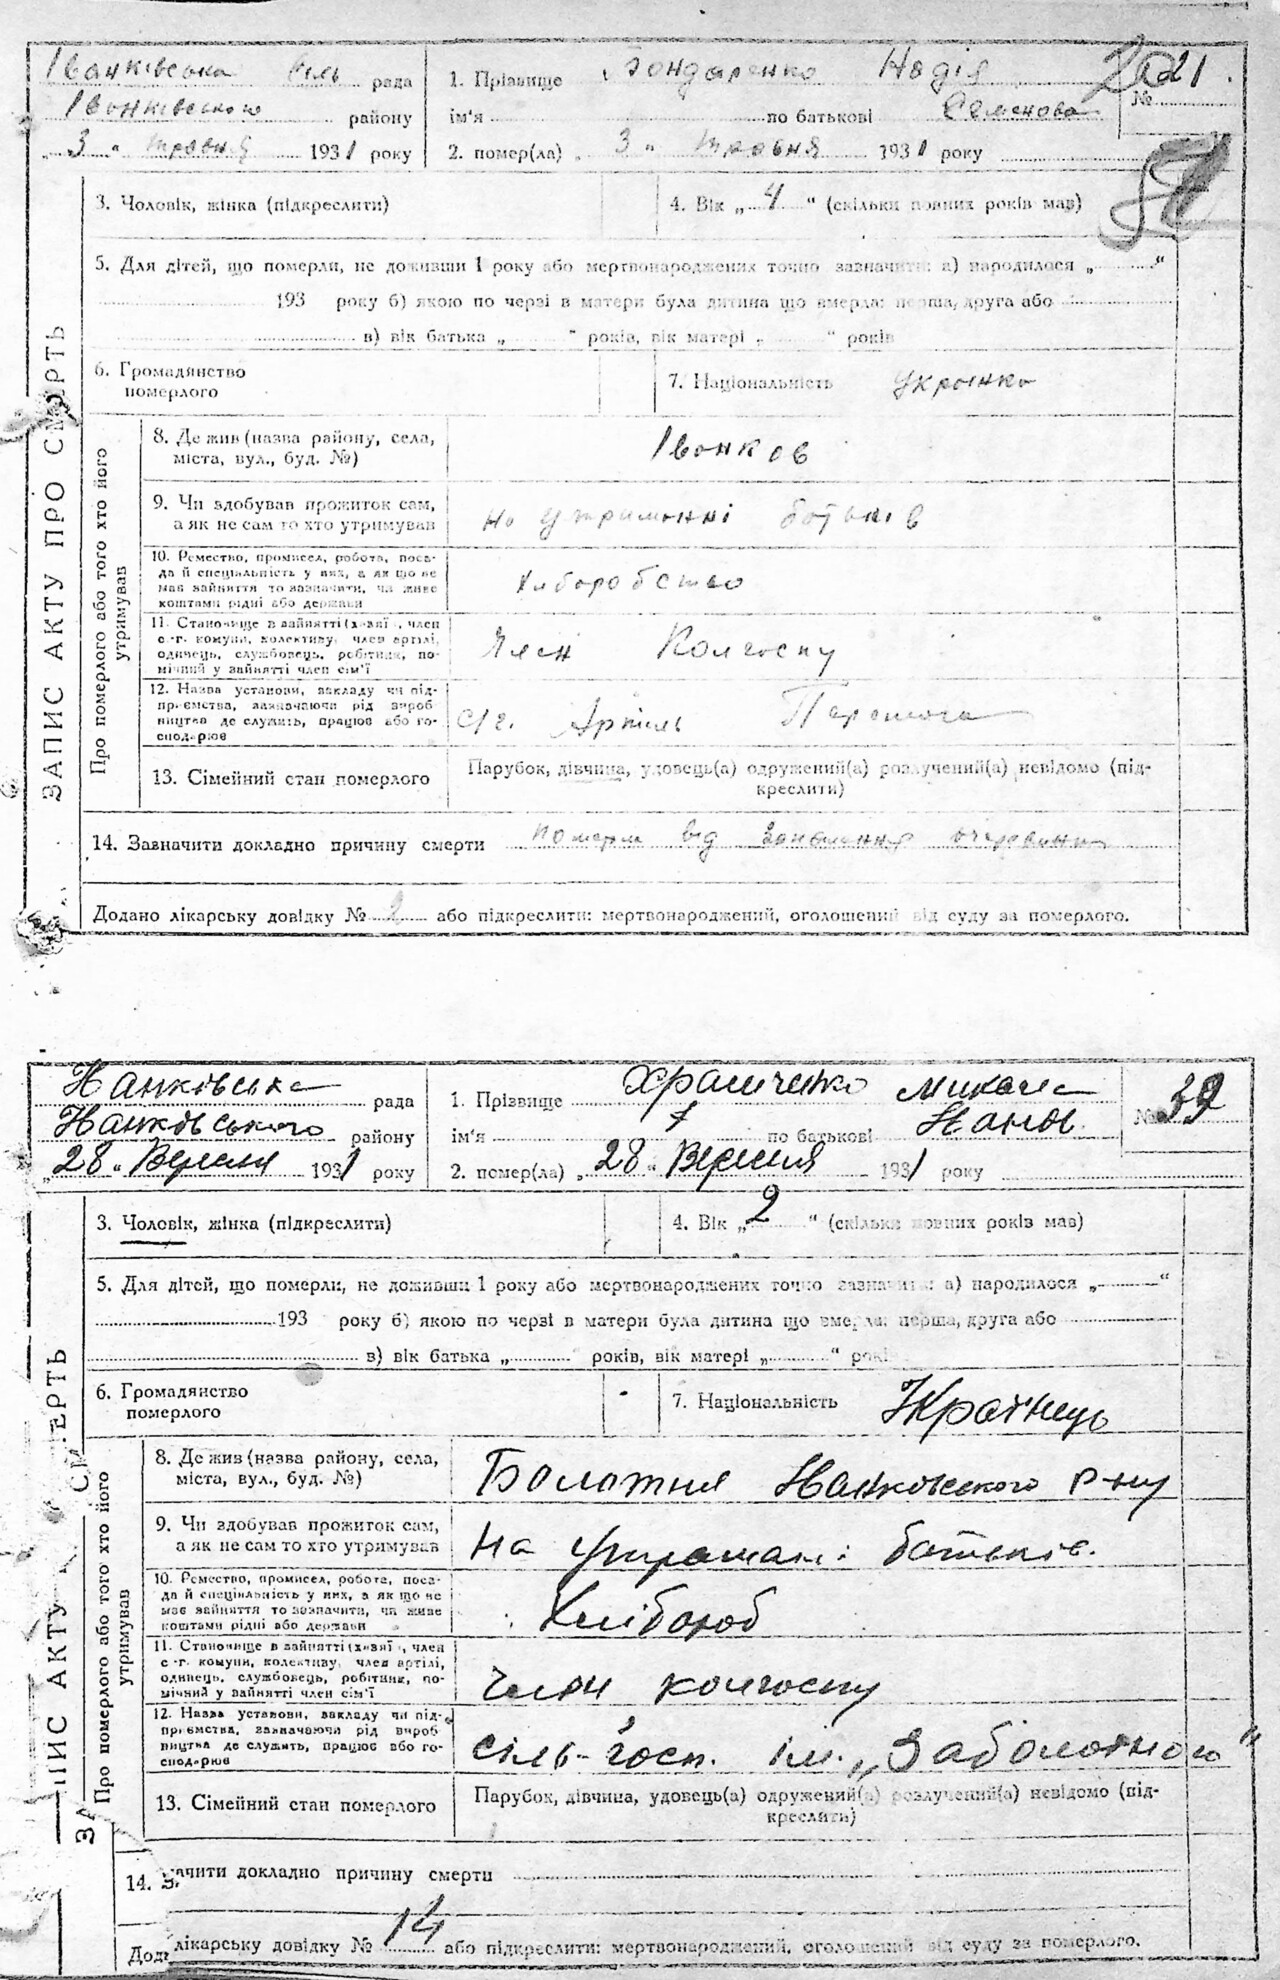 Іванківська сіль рада
Іванківського району
„ 3 „ травня 1931 року
1. Прізвище Бондаренко Надія
ім'я по батькові Семенова
2. помер(ла) „ 3 „ травня 1931 року
№ 21
ЗАПИС АКТУ ПРО СМЕРТЬ
3. Чоловік, жінка (підкреслити)
4. Вік „ 4 “ (скільки повних років мав)
5. Для дітей, що померли, не доживши 1 року або мертвонароджених точно зазначити: а) народилося „ “
193 року б) якою по черзі в матери була дитина що вмерла: перша, друга або
в) вік батька „ “ років, вік матері „ “ років
6. Громадянство
померлого
7. Національність Українка
Про померлого або того хто його
утримував
8. Де жив (назва району, села,
міста, вул., буд. №)
Іванков
9. Чи здобував прожиток сам,
а як не сам то хто утримував
На утриманні батьків
10. Ремество, промисел, робота, поса-
да й спеціяльність у них, а як що не
має зайняття то зазначити, чи живе
коштами рідні або держави
Хліборобство
11. Становище в зайнятті (хазяї, член
с.-г. комуни, колективу, член артілі,
одинець, службовець, робітник, по-
мічний у зайнятті член сім'ї
Член Колгоспу
12. Назва установи, закладу чи під-
приємства, зазначаючи рід вироб
ництва де служить, працює або го-
сподарює
С/г. Артіль Перемога
13. Сімейний стан померлого
Парубок, дівчина, удовець(а) одружений(а) розлучений(а) невідомо (під-
креслити)
14. Зазначити докладно причину смерти померла від запалення очеревини
Додано лікарську довідку № 2 або підкреслити: мертвонароджений, оголошений від суду за померлого.
Іванківська рада
Іванківського району
„ 28 „ Вересня 1931 року
1. Прізвище Храпченко Микола
ім'я по батькові Іванов.
2. помер(ла) „ 28 „ Вересня 1931 року
№ 39
ЗАПИС АКТУ СМЕРТЬ
3. Чоловік, жінка (підкреслити)
4. Вік „ 2 “ (скільки повних років мав)
5. Для дітей, що померли, не доживши 1 року або мертвонароджених точно зазначити: а) народилося „ “
193 року б) якою по черзі в матери була дитина що вмерла: перша, друга або
в) вік батька „ років, вік матері „ “ років
6. Громадянство
померлого
7. Національність Українець
Про померлого або того хто його
утримував
8. Де жив (назва району, села,
міста, вул., буд. №)
Болотня Іванковского р-ну
9. Чи здобував прожиток сам,
а як не сам то хто утримував
На утримані батьків.
10. Ремество, промисел, робота, поса-
да й спеціяльність у них, а як що не
має зайняття то зазначити, чи живе
коштами рідні або держави
Хлібороб
11. Становище в зайнятті (хазяї, член
с.-г. комуни, колективу, член артілі,
одинець, службовець, робітник, по-
мічний у зайнятті член сім'ї
член колгоспу
12. Назва установи, закладу чи під-
приємства, зазначаючи рід вироб
ництва де служить, працює або го-
сподарює
сіль-госп. ім. „Заболотного“
13. Сімейний стан померлого
Парубок, дівчина, удовець(а) одружений(а) розлучений(а) невідомо (під-
креслити)
14. З начити докладно причину смерти
Дода лікарську довідку № 14 або підкреслити: мертвонароджений, оголошений від суду за померлого.